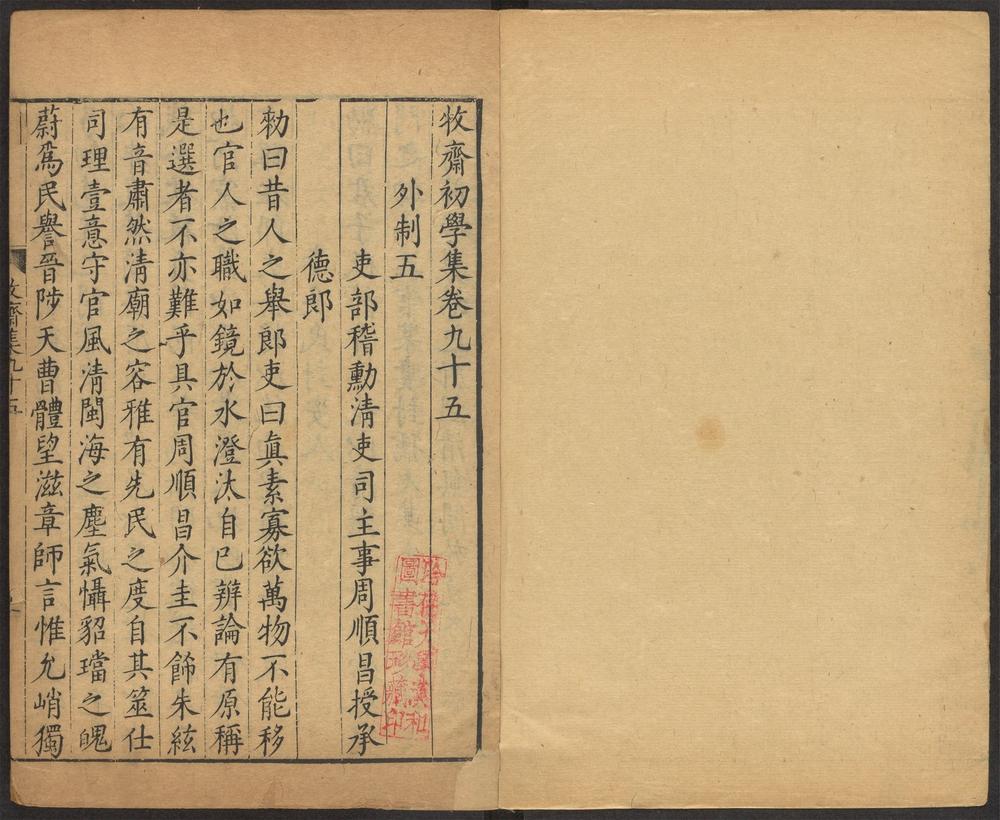 牧齋初學集卷九十五
外制五
吏部稽勳淸吏司主事周順昌授承
德郎
勑曰昔人之舉郎吏曰眞素寡欲萬物不能移
也官人之職如鏡於水澄汰自已辨論有原稱
是選者不亦難乎具官周順昌介圭不飾朱絃
有音肅然淸廟之容雅有先民之度自其筮仕
司理壹意守官風淸閩海之塵氣懾貂璫之魄
蔚爲民譽晉陟天曹體望滋章師言惟允峭獨
牧齋集九十五
哈佛大學漢和
圖書館珍藏印